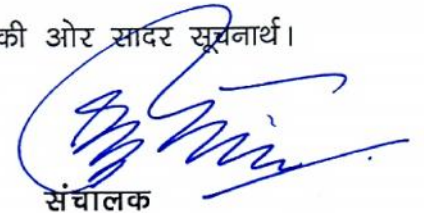 की ओर सादर सूचनार्थ।
संचालक